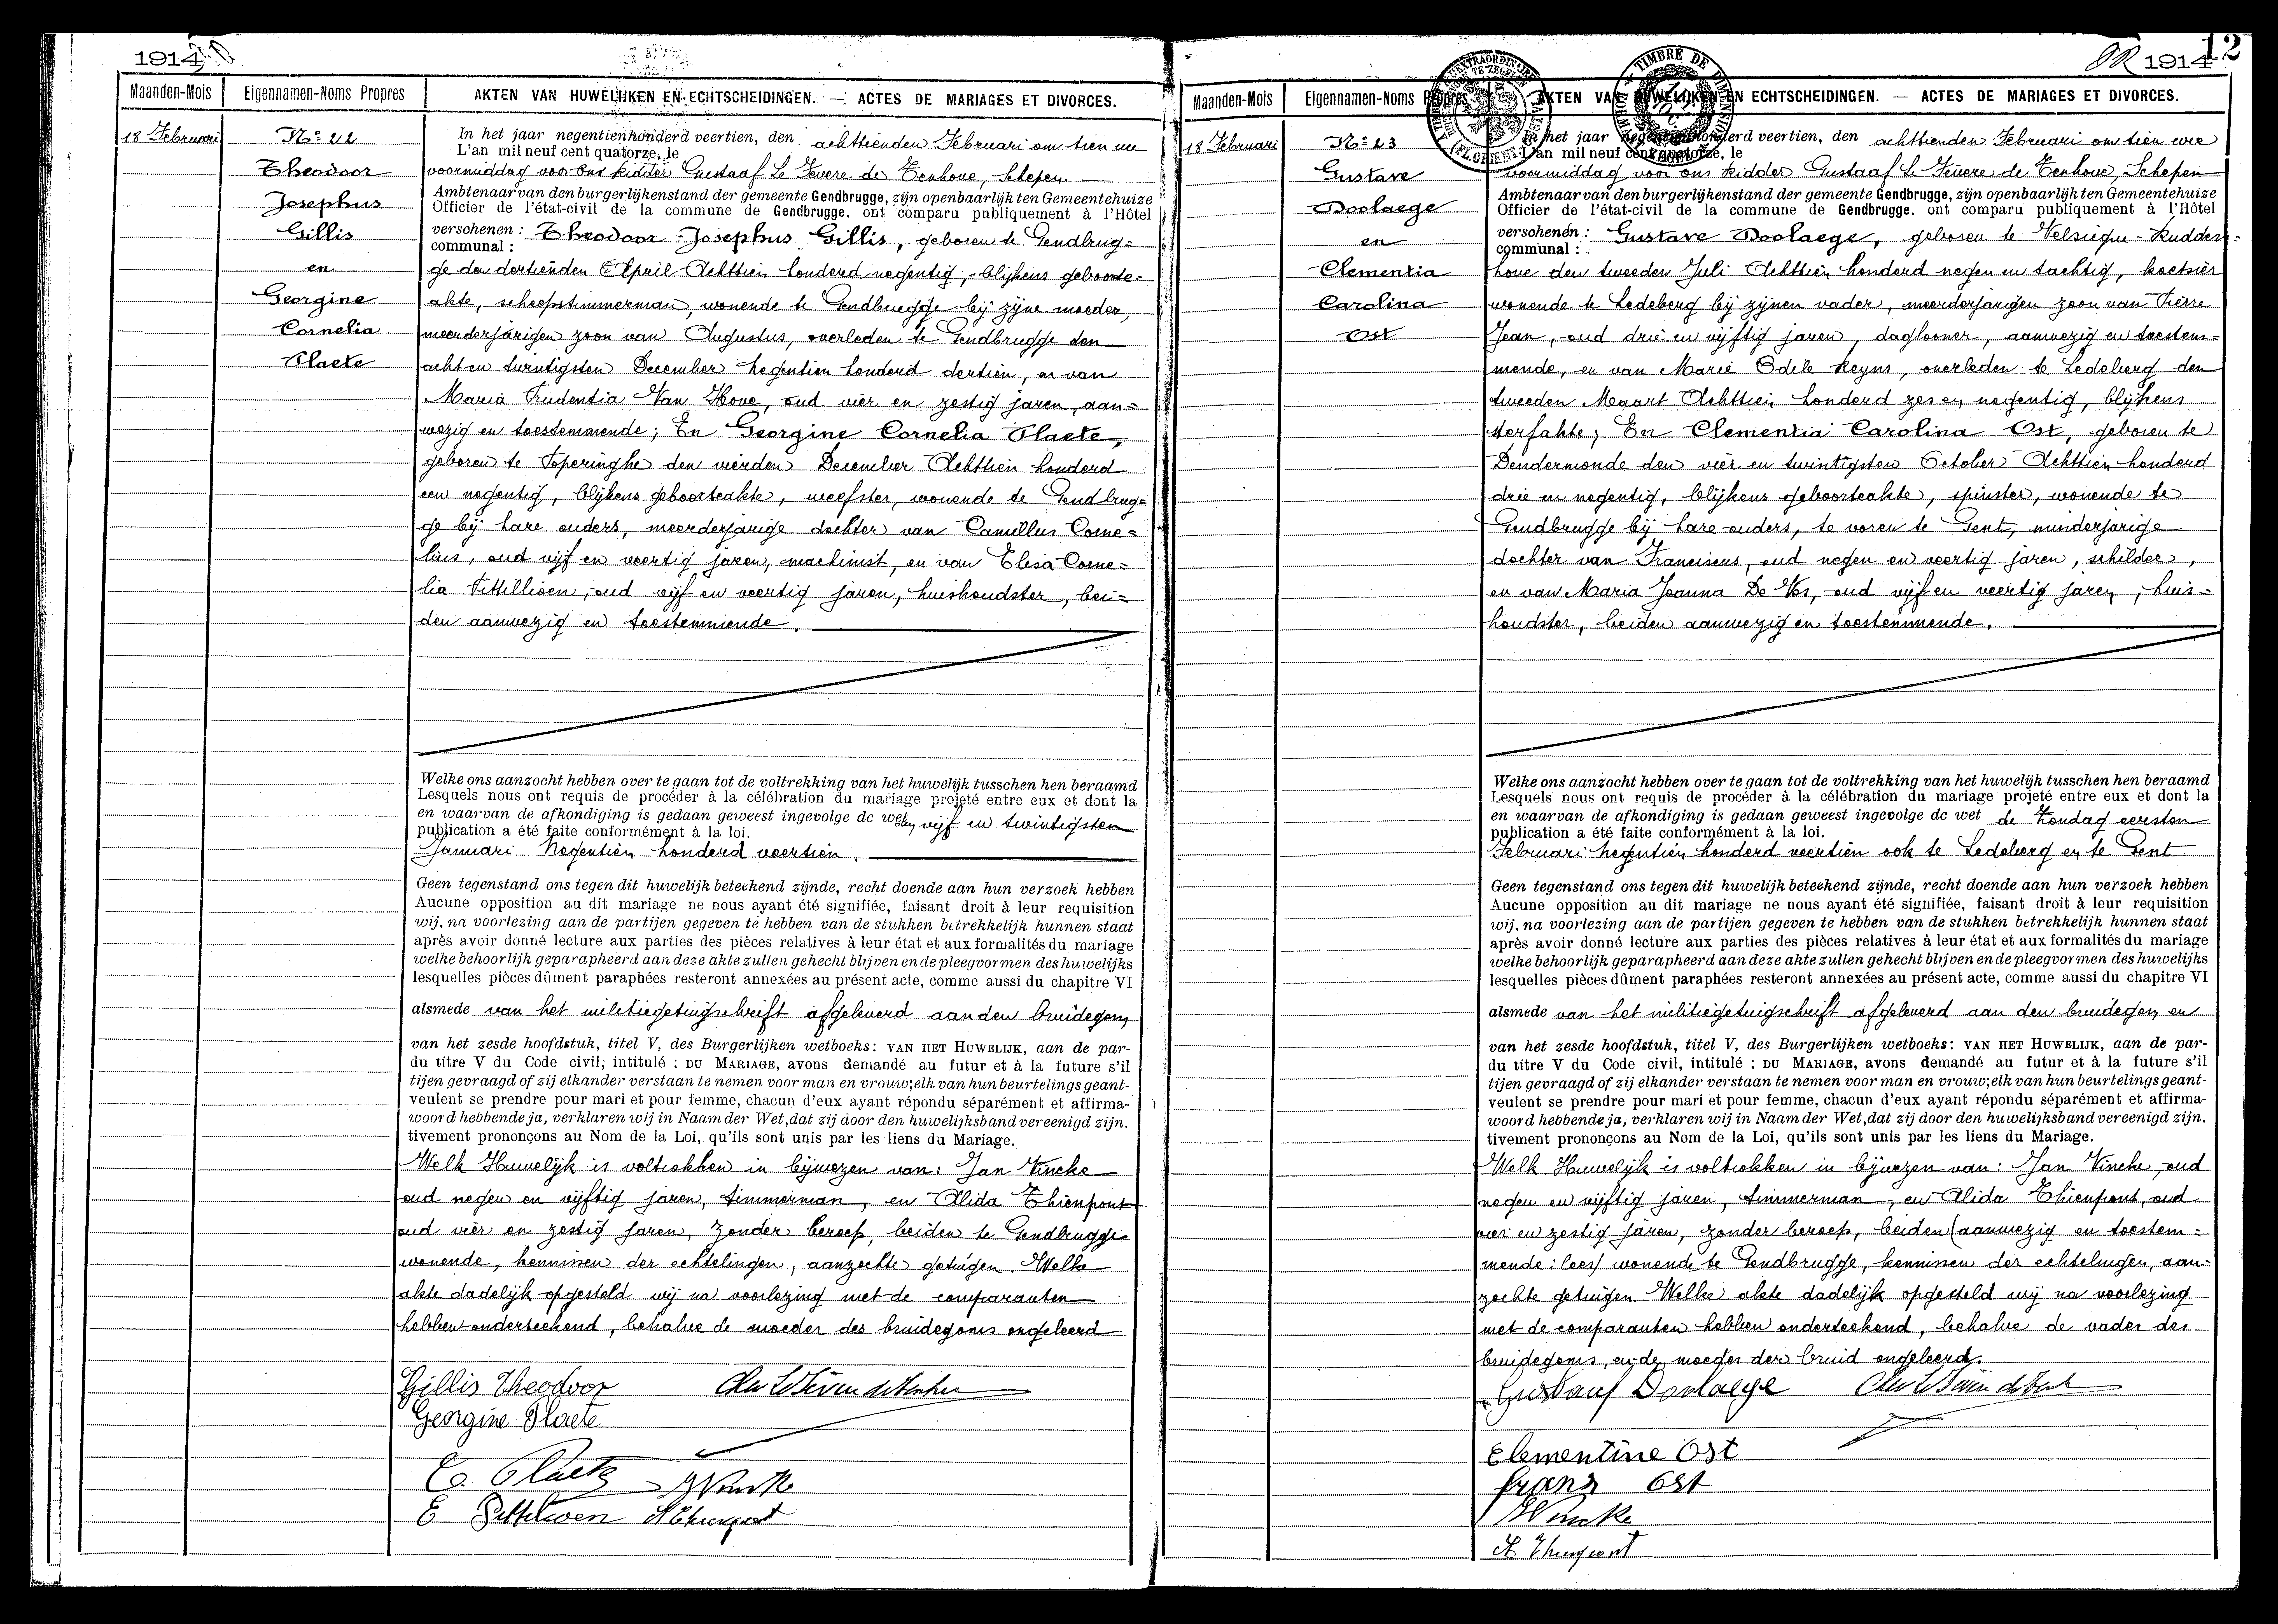 1914
Maanden-Mois
Eigennamen-Noms Propres
AKTEN VAN HUWELIJKEN EN ECHTSCHEIDINGEN. — ACTES DE MARIAGES ET DIVORCES.
18 Februari
Nº 22
Theodoor
Josephus
Gillis
en
Georgine
Cornelia
Plaete
In het jaar negentienhonderd veertien, den achttienden Februari om tien ure
L'an mil neuf cent quatorze, le
voormiddag voor ons Ridder Gustaaf Le Fevere de Tenhove, Schepen
Ambtenaar van den burgerlijkenstand der gemeente Gendbrugge, zijn openbaarlijk ten Gemeentehuize
Officier de l'état-civil de la commune de Gendbrugge. ont comparu publiquement à l'Hôtel
verschenen : Theodoor Josephus Gillis, geboren te Gendbrug=
communal :
ge den dertienden April Achttien honderd negentig, blijkens geboorte=
akte, scheepstimmerman, wonende te Gendbrugge bij zijne moeder,
meerderjarigen zoon van Augustus, overleden te Gendbrugge den
acht en twintigsten December Negentien honderd dertien, en van
Maria Prudentia Van Hove, oud vier en zestig jaren, aan=
wezig en toestemmende; En Georgine Cornelia Plaete,
geboren te Poperinghe den vierden December Achttien honderd
een negentig, blijkens geboorteakte, weefster, wonende te Gendbrug=
ge bij hare ouders, meerderjarige dochter van Camillus Corne=
lius, oud vijf en veertig jaren, machinist, en van Elisa Corne=
lia Pittillioen, oud vijf en veertig jaren, huishoudster, bei=
den aanwezig en toestemmende.
Welke ons aanzocht hebben over te gaan tot de voltrekking van het huwelijk tusschen hen beraamd
Lesquels nous ont requis de procéder à la célébration du mariage projeté entre eux et dont la
en waarvan de afkondiging is gedaan geweest ingevolge de wet den vijf en twintigsten
publication a été faite conformément à la loi.
Januari Negentien honderd veertien.
Geen tegenstand ons tegen dit huwelijk beteekend zijnde, recht doende aan hun verzoek hebben
Aucune opposition au dit mariage ne nous ayant été signifiée, faisant droit à leur requisition
wij, na voorlezing aan de partijen gegeven te hebben van de stukken betrekkelijk hunnen staat
après avoir donné lecture aux parties des pièces relatives à leur état et aux formalités du mariage
welke behoorlijk geparapheerd aan deze akte zullen gehecht blijven en de pleegvormen des huwelijks
lesquelles pièces dûment paraphées resteront annexées au présent acte, comme aussi du chapitre VI
alsmede van het militiegetuigschrift afgeleverd aan den bruidegom
van het zesde hoofdstuk, titel V, des Burgerlijken wetboeks: VAN HET HUWELIJK, aan de par-
du titre V du Code civil, intitulé : DU MARIAGE, avons demandé au futur et à la future s'il
tijen gevraagd of zij elkander verstaan te nemen voor man en vrouw;elk van hun beurtelings geant-
veulent se prendre pour mari et pour femme, chacun d'eux ayant répondu séparément et affirma-
woord hebbende ja, verklaren wij in Naam der Wet, dat zij door den huwelijksband vereenigd zijn.
tivement prononçons au Nom de la Loi, qu'ils sont unis par les liens du Mariage.
Welk Huwelijk is voltrokken in bijwezen van: Jan Vincke
oud negen en vijftig jaren, timmerman, en Alida Thienpont
oud vier en zestig jaren, zonder beroep, beiden te Gendbrugge
wonende, kennissen der echtelingen, aanzochte getuigen. Welke
akte dadelijk opgesteld wij na voorlezing met de comparanten
hebben onderteekend, behalve de moeder des bruidegoms ongeleerd
Gillis Theodoor
Georgine Plaete
C. Plaete
E Pittilioen
12
1914
Maanden-Mois
Eigennamen-Noms Propres
AKTEN VAN HUWELIJKEN EN ECHTSCHEIDINGEN. — ACTES DE MARIAGES ET DIVORCES.
18 Februari
Nº 23
Gustave
Doolaege
en
Clementia
Carolina
Ost
In het jaar negentienhonderd veertien, den achttienden Februari om tien ure
L'an mil neuf cent quatorze, le
voormiddag voor ons Ridder Gustaaf Le Fevere de Tenhove, Schepen
Ambtenaar van den burgerlijkenstand der gemeente Gendbrugge, zijn openbaarlijk ten Gemeentehuize
Officier de l'état-civil de la commune de Gendbrugge. ont comparu publiquement à l'Hôtel
verschenen : Gustave Doolaege, geboren te Velsique-Rudders=
communal :
hove den tweeden Juli Achttien honderd negen en tachtig, koetsier
wonende te Ledeberg bij zijnen vader, meerderjarigen zoon van Pierre
Jean, oud drie en vijftig jaren, daglooner, aanwezig en toestem=
mende, en van Marie Odile Reyns, overleden te Ledeberg den
tweeden Maart Achttien honderd zes en negentig, blijkens
sterfakte; En Clementia Carolina Ost, geboren te
Dendermonde den vier en twintigsten October Achttien honderd
drie en negentig, blijkens geboorteakte, spinster, wonende te
Gendbrugge bij hare ouders, te voren te Gent, minderjarige
dochter van Franciscus, oud negen en veertig jaren, schilder,
en van Maria Joanna De Vos, oud vijf en veertig jaren, huis=
houdster, beiden aanwezig en toestemmende.
Welke ons aanzocht hebben over te gaan tot de voltrekking van het huwelijk tusschen hen beraamd
Lesquels nous ont requis de procéder à la célébration du mariage projeté entre eux et dont la
en waarvan de afkondiging is gedaan geweest ingevolge de wet de Zondag eersten
publication a été faite conformément à la loi.
Februari Negentien honderd veertien ook te Ledeberg en te Gent
Geen tegenstand ons tegen dit huwelijk beteekend zijnde, recht doende aan hun verzoek hebben
Aucune opposition au dit mariage ne nous ayant été signifiée, faisant droit à leur requisition
wij, na voorlezing aan de partijen gegeven te hebben van de stukken betrekkelijk hunnen staat
après avoir donné lecture aux parties des pièces relatives à leur état et aux formalités du mariage
welke behoorlijk geparapheerd aan deze akte zullen gehecht blijven en de pleegvormen des huwelijks
lesquelles pièces dûment paraphées resteront annexées au présent acte, comme aussi du chapitre VI
alsmede van het militiegetuigschrift afgeleverd aan den bruidegom en
van het zesde hoofdstuk, titel V, des Burgerlijken wetboeks: VAN HET HUWELIJK, aan de par-
du titre V du Code civil, intitulé : DU MARIAGE, avons demandé au futur et à la future s'il
tijen gevraagd of zij elkander verstaan te nemen voor man en vrouw;elk van hun beurtelings geant-
veulent se prendre pour mari et pour femme, chacun d'eux ayant répondu séparément et affirma-
woord hebbende ja, verklaren wij in Naam der Wet, dat zij door den huwelijksband vereenigd zijn.
tivement prononçons au Nom de la Loi, qu'ils sont unis par les liens du Mariage.
Welk Huwelijk is voltrokken in bijwezen van: Jan Vincke, oud
negen en vijftig jaren, timmerman, en Alida Thienpont, oud
vier en zestig jaren, zonder beroep, beiden (aanwezig en toestem=
mende: lees) wonende te Gendbrugge, kennissen der echtelingen, aan=
zochte getuigen. Welke akte dadelijk opgesteld wij na voorlezing
met de comparanten hebben onderteekend, behalve de vader des
bruidegoms, en de moeder der bruid ongeleerd.
Gustaaf Doolaege
Clementine Ost
franz Ost
Vincke
A. Thienpont